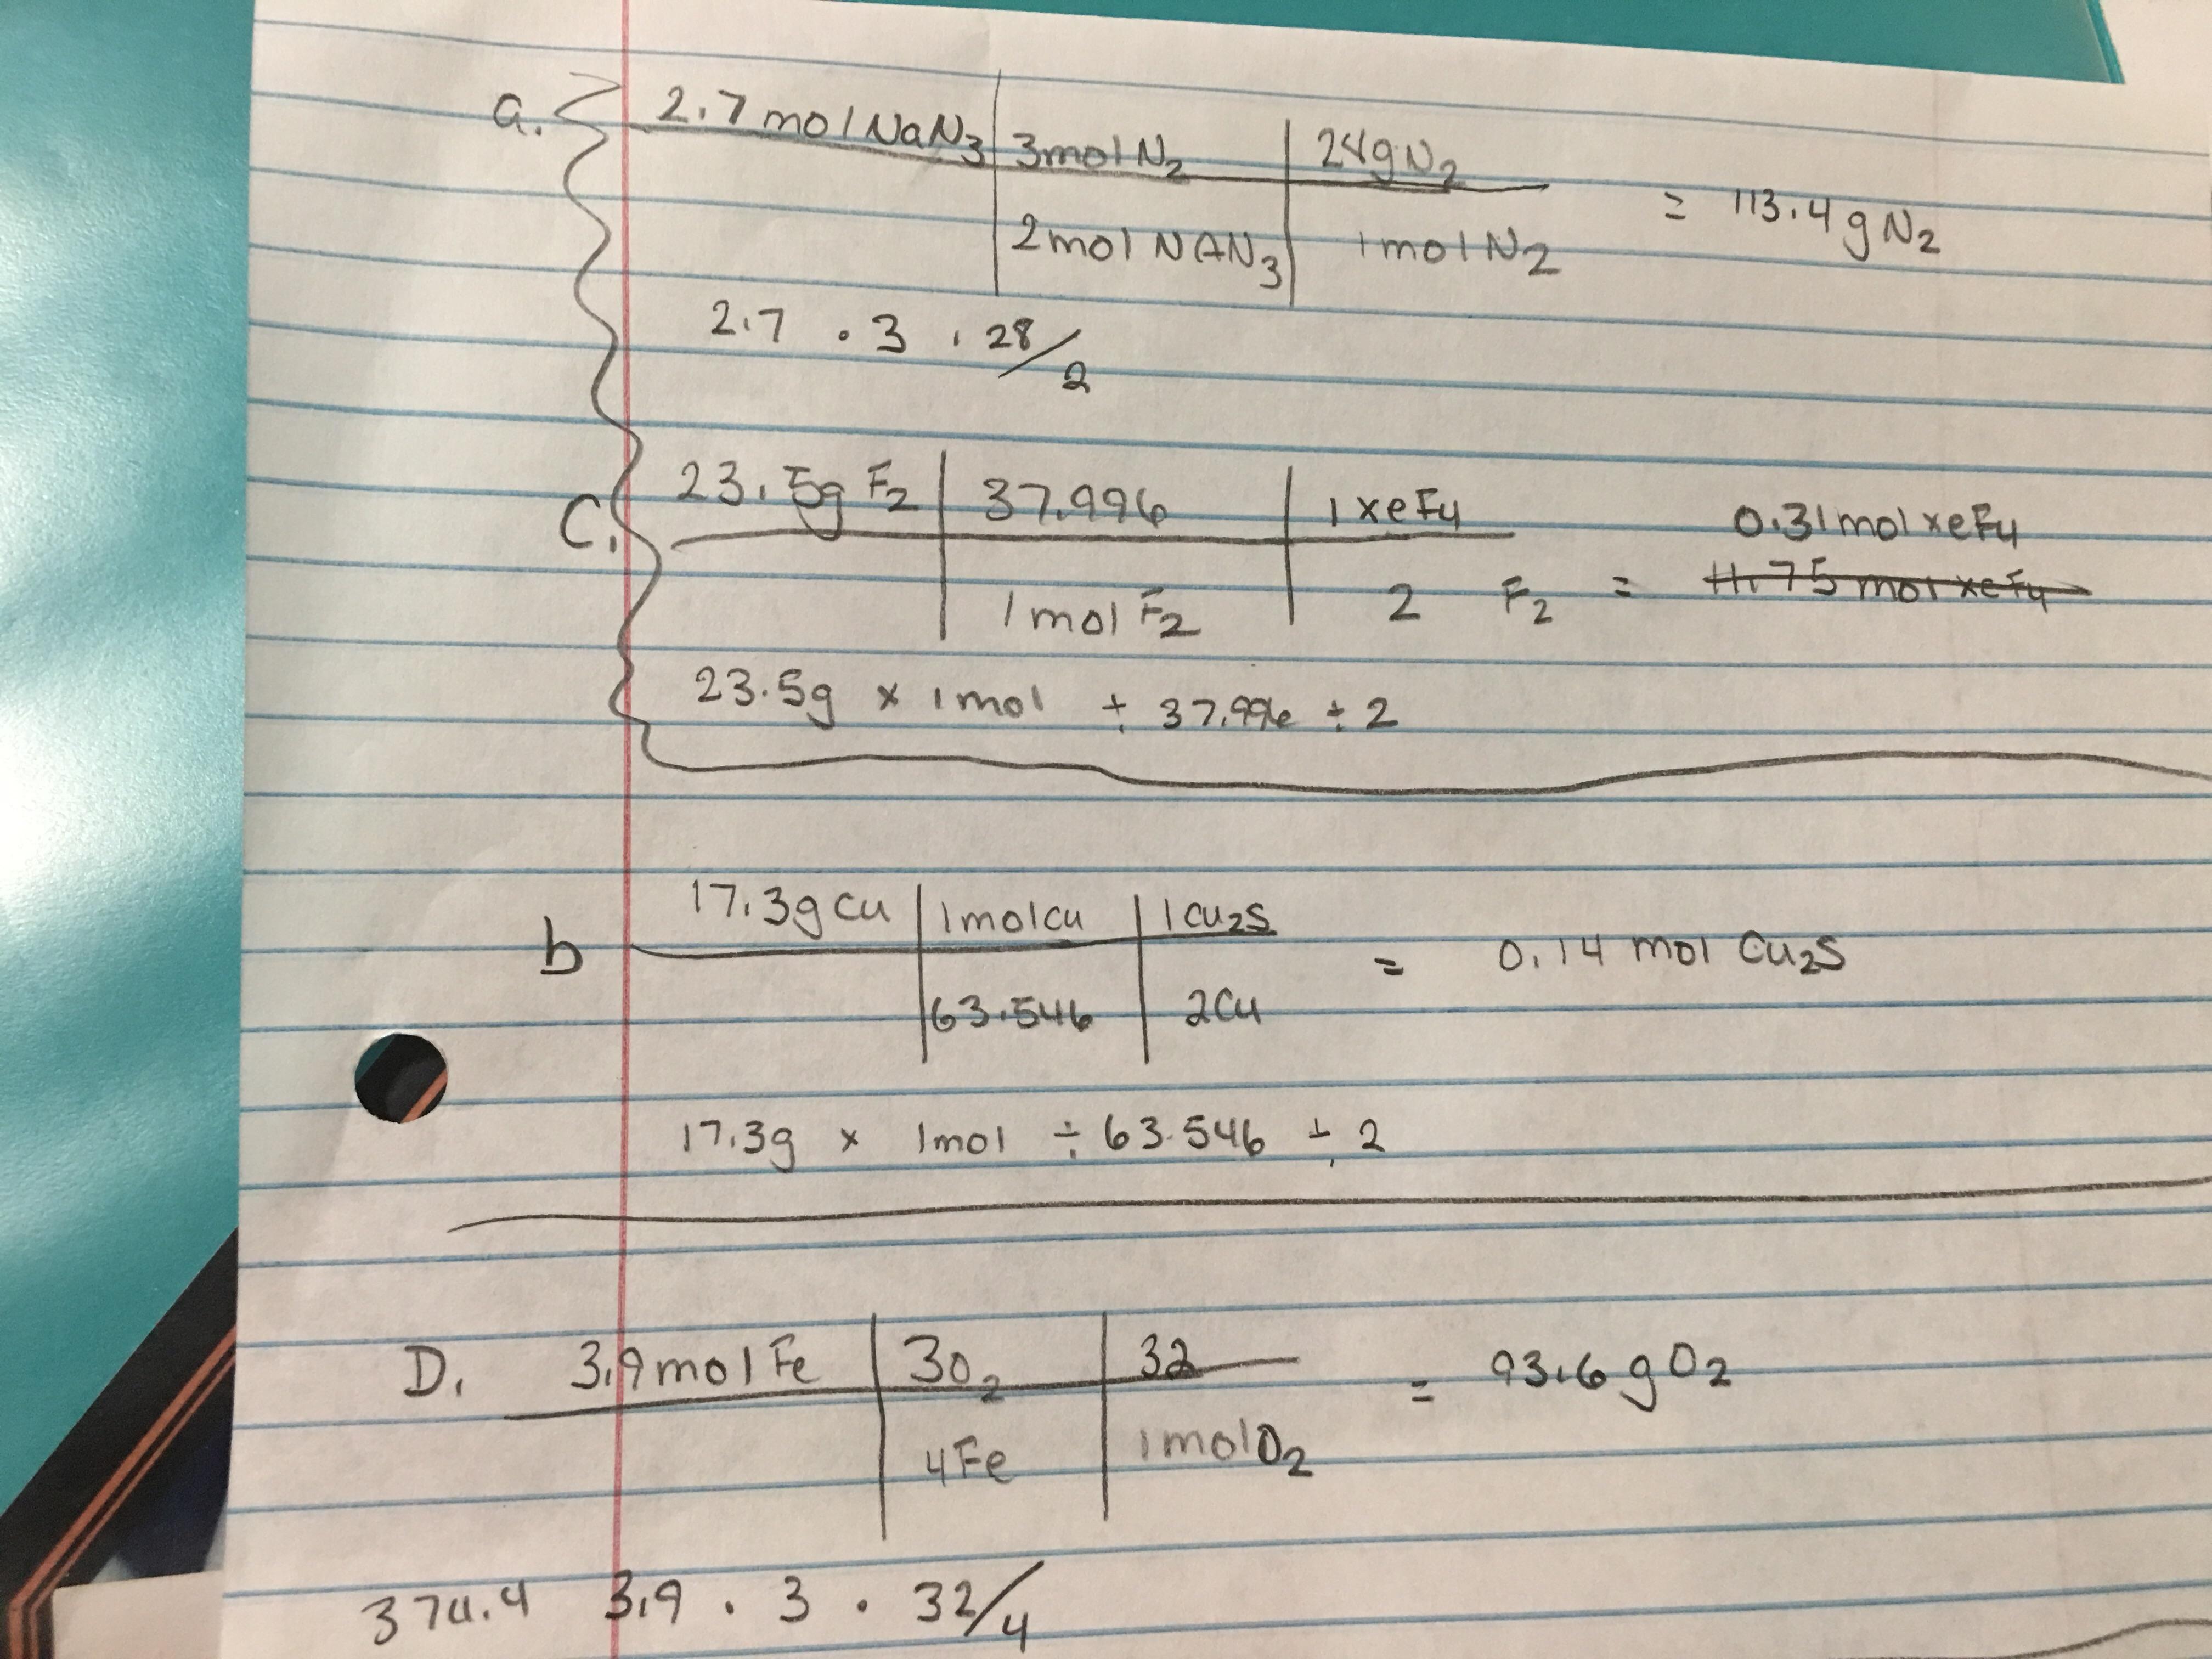 a. 2.7 mol NaN3 | 3mol N2 | 24g N2
2mol NAN3 | 1mol N2 = 113.4 g N2
2.7 · 3 · 28/2
C. 23.5g F2 | 37.996 | 1 xeF4 0.31mol xeF4
1mol F2 | 2 F2 = 11.75 mol xeF4
23.5g x 1mol ÷ 37.996 ÷ 2
b 17.3g Cu | 1molcu | 1 cu2S = 0.14 mol Cu2S
63.546 | 2Cu
17.3g x 1mol ÷ 63.546 ÷ 2
D. 3.9mol Fe | 3O2 | 32 = 93.6 g O2
4Fe | 1mol O2
374.4 3.9 · 3 · 32/4